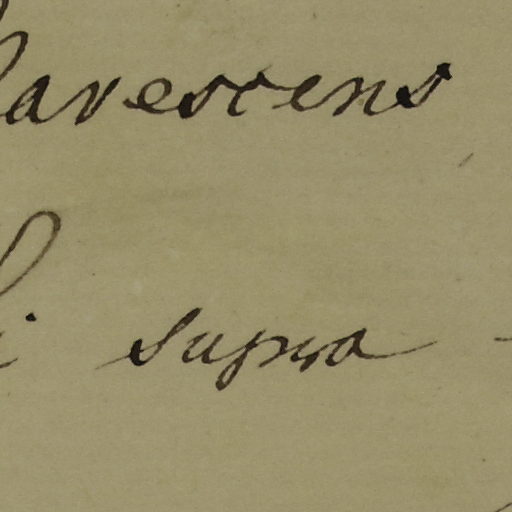 lavescens
i supra -